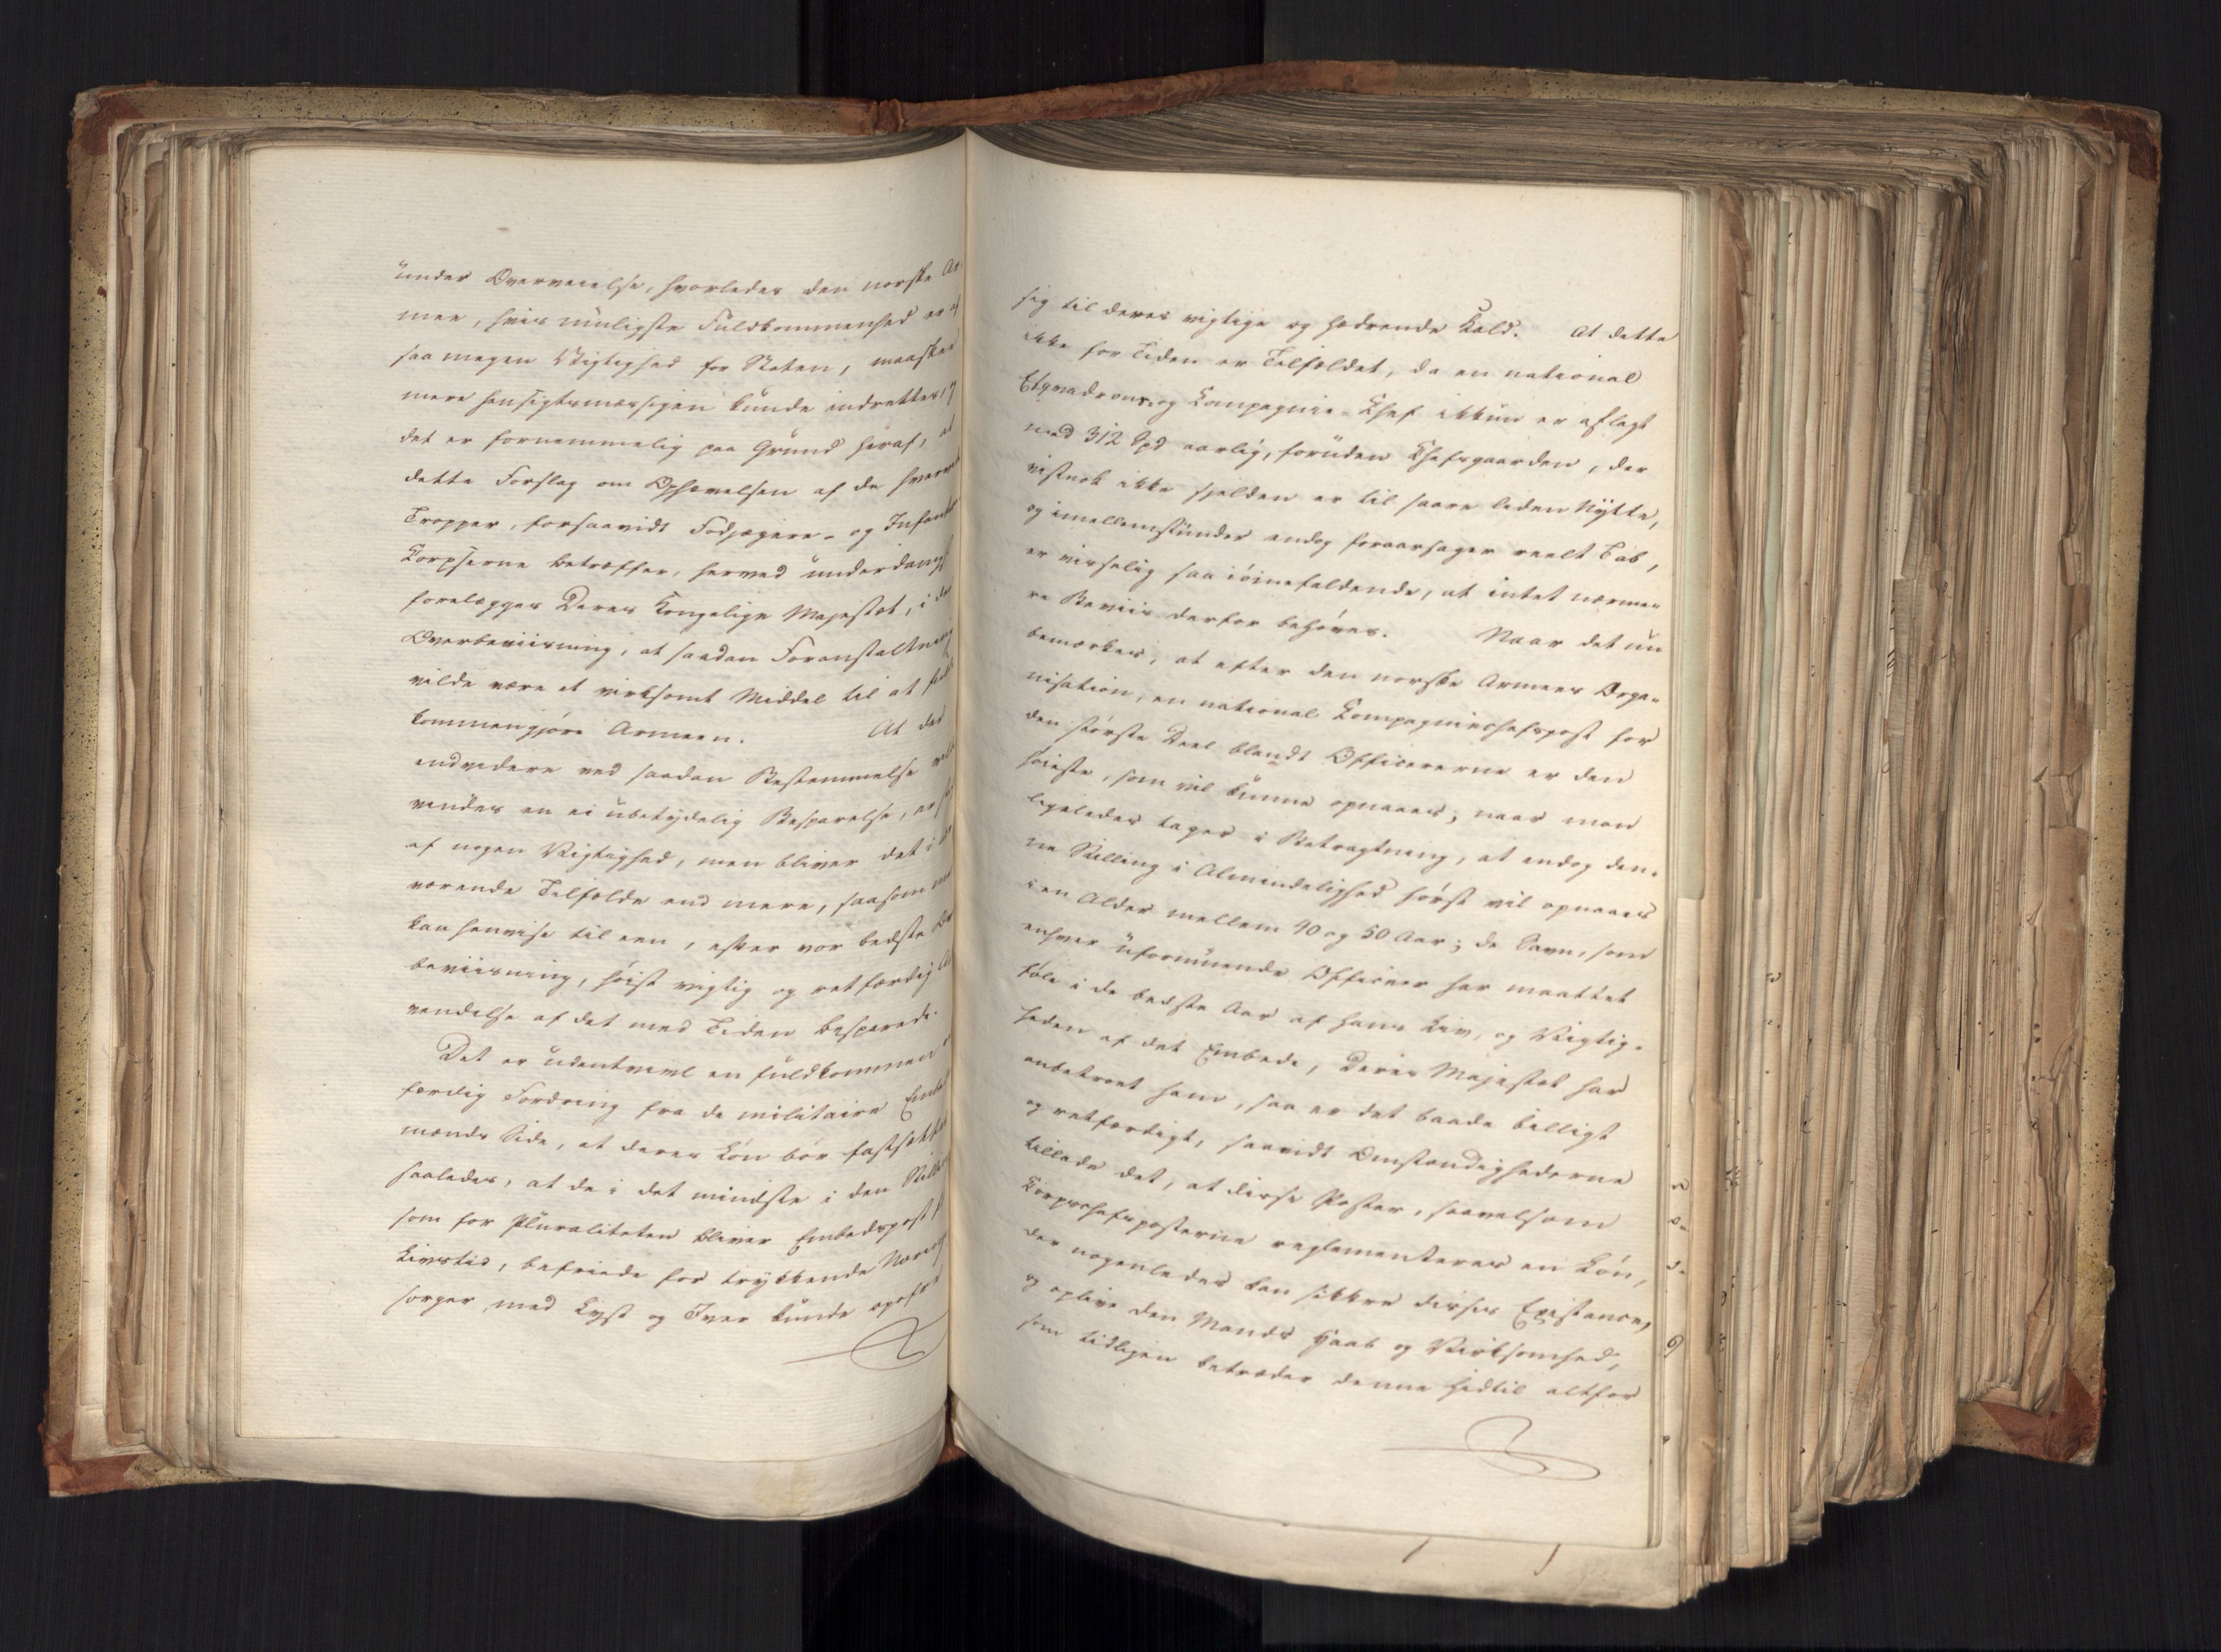 under Overveielse, hvorledes den norske Ar-
mee, hvis muligste Fuldkommenhed er af
saa megen Vigtighed for Staten, maaskee
mere hensigtsmæssigen kunde indrettes, og
det er fornemmelig paa Grund heraf, at
dette Forslag om Ophævelsen af de hvervede
Tropper, forsaavidt Fodjægere- og Infanterie
Korpserne betræffer, herved underdanigst
forelægges Deres Kongelige Majestæt, i den
Overbeviisning, at saadan Foranstaltning
vilde være et virksomt Middel til at fuld
kommengjøre Armeen. At der
endvidere ved saadan Bestemmelse vil
vindes en ei ubetydelig Besparelse, er
af nogen Vigtighed, men bliver det i
værende Tilfælde end mere, saasom man
kan henvise til een, efter vor bedste Over
beviisning, høist vigtig og retfærdig An
vendelse af det med Tiden besparede.
Det er udentvivl en fuldkommen
færdig Fordring fra de militaire Embeds
mænds Side, at deres Løn bør fastsættes
saaledes, at de i det mindste i den Stilling
som for Pluraliteten bliver Embedspost
Livstid, befriede for trykkende Nærings
sorger med Lyst og Iver kunde opofre
sig til deres vigtige og hædrende Kald. At dette
ikke for Tiden er Tilfældet, da en national
Esqvadrons- og Kompagnie-Chef ikkun er aflagt
med 312 Spd aarlig, foruden Chefsgaarden, der
vistnok ikke sjelden er til saare liden Nytte,
og imellemstunder endog foraarsager reelt Tab,
er virkelig saa iøinefaldende, at intet nærme-
re Beviis derfor behøves. Naar det nu
bemærkes, at efter den norske Armees Orga-
nisation, en national Kompagniechefspost for
den største Deel blandt Officererne er den
høieste, som vil kunne opnaaes; naar man
ligeledes tager i Betragtning, at endog den-
ne Stilling i Almindelighed først vil opnaaes
i en Alder mellem 40 og 50 Aar; de Savn, som
enhver uformuende Officeer har maattet
føle i de bedste Aar af hans Liv, og Vigtig-
heden af det Embede, Deres Majestæt har
anbetroet ham, saa er det baade billigt
og retfærdigt, saavidt Omstændighederne
tillade det, at disse Poster, saavelsom
Korpschefsposterne reglementeres en Løn,
der nogenledes kan sikkre disses Existance,
og oplive den Mands Haab og Virksomhed,
som tidligen betræder denne hidtil altfor